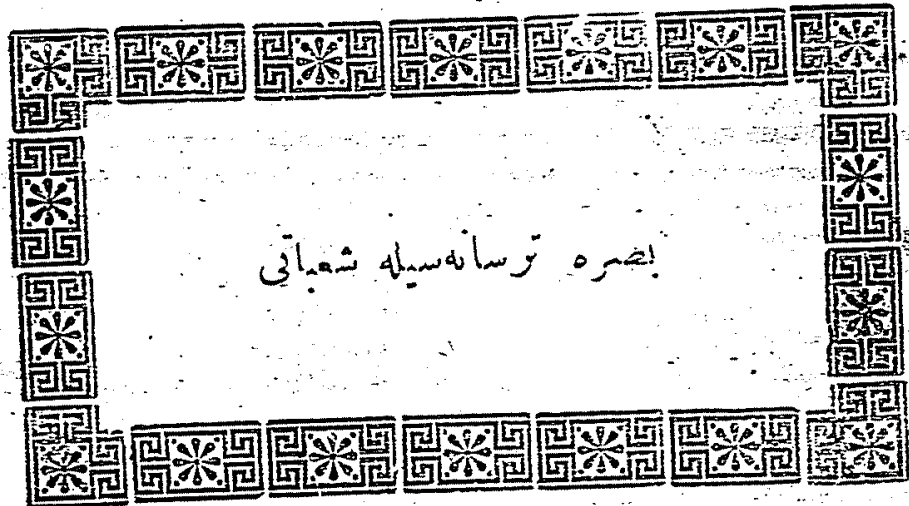 بصره ترسانه‌سیله شعباتی